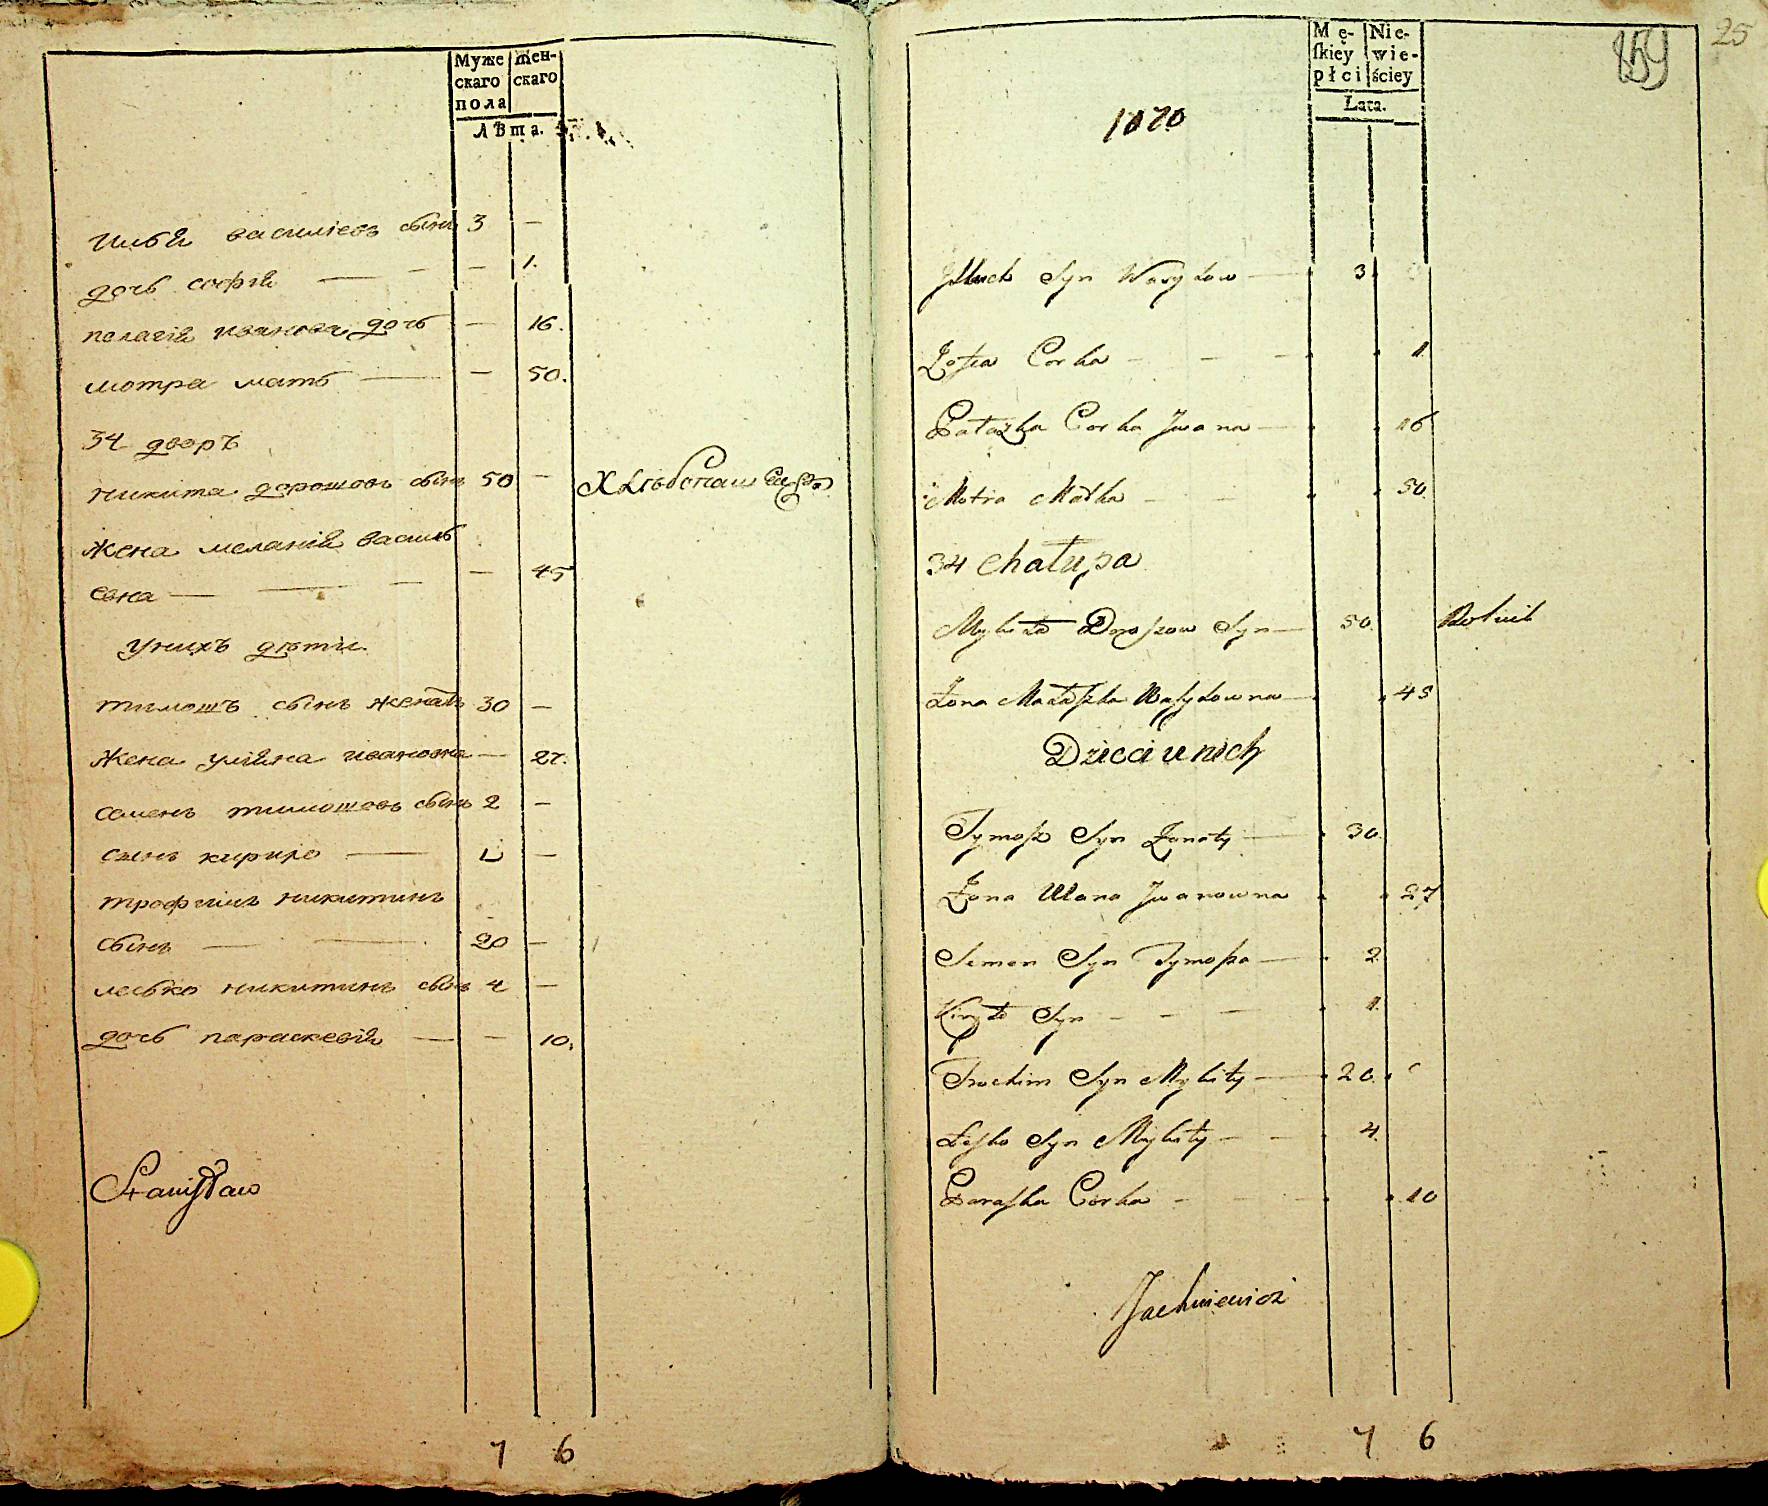 Муже
скаго
пола
Жен-
скаго
лѣта.
илья василіевъ сынъ 3 —
дочь софія — — — 1.
пелагія иванова дочь — 16.
мотра мать — — 50.
34 дворъ
никита дорошовъ сынъ 50 —
жена меланія василь
евна — — — 45
у нихъ дѣти
тимошъ сынъ женатъ 30 —
жена уліяна ивановна — 27.
семенъ тимошовъ сынъ 2 —
сынъ кирило — 1 —
трофимъ никитинъ
сынъ — — 20 —
лесько никитинъ сынъ 4 —
дочь параскевія — — 10.
Stanisław
7 6
Mę-
skiey
płci
Nie-
wie-
ściey
Lata.
159
25
1070
Jlluch Syn Wasylow — 3
Zofia Corka - — - 1
Pałazka Corka Jwana — 16
Motra Matka - - 50
34 Chałupa
Mykita Doroszow Syn — 50 Rolnik
Żona Małaszka Wasylowna — 45
Dzieci u nich
Tymosz Syn Żonaty — 30.
Żona Ulana Jwanowna 27
Semen Syn Tymosza — 2
Kiryło Syn - - — 1.
Trochim Syn Mykity — 20.
Leśko Syn Mykity - - 4.
Paraska Córka - — 10
Jachniewicz
7 6